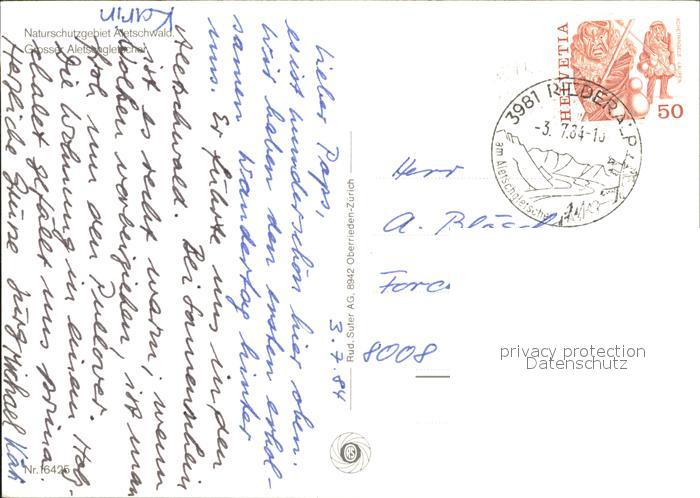 Naturschutzgebiet Aletschwald.
Grosser Aletschgletscher
3.7.84
Lieber Paps,
es ist wunderschön hier oben.
Wir haben den ersten erhol-
samen Wandertag hinter
uns. Er führte uns in den
Aletschwald. Bei Sonnenschein
ist es recht warm, wenn
Wolken vorbeiziehen, ist man
froh um den Pullover.
Die Wohnung in einem Holz-
chalet gefällt uns prima.
Herzliche Grüsse Jürg, Michael
Karin
Nr. 16425
Rud. Suter AG, 8942 Oberrieden-Zürich
HELVETIA
50
3981 RIEDERALP
-3. 7.84-
am Aletschgletscher
Herr
A.
8008
privacy protection
Datenschutz